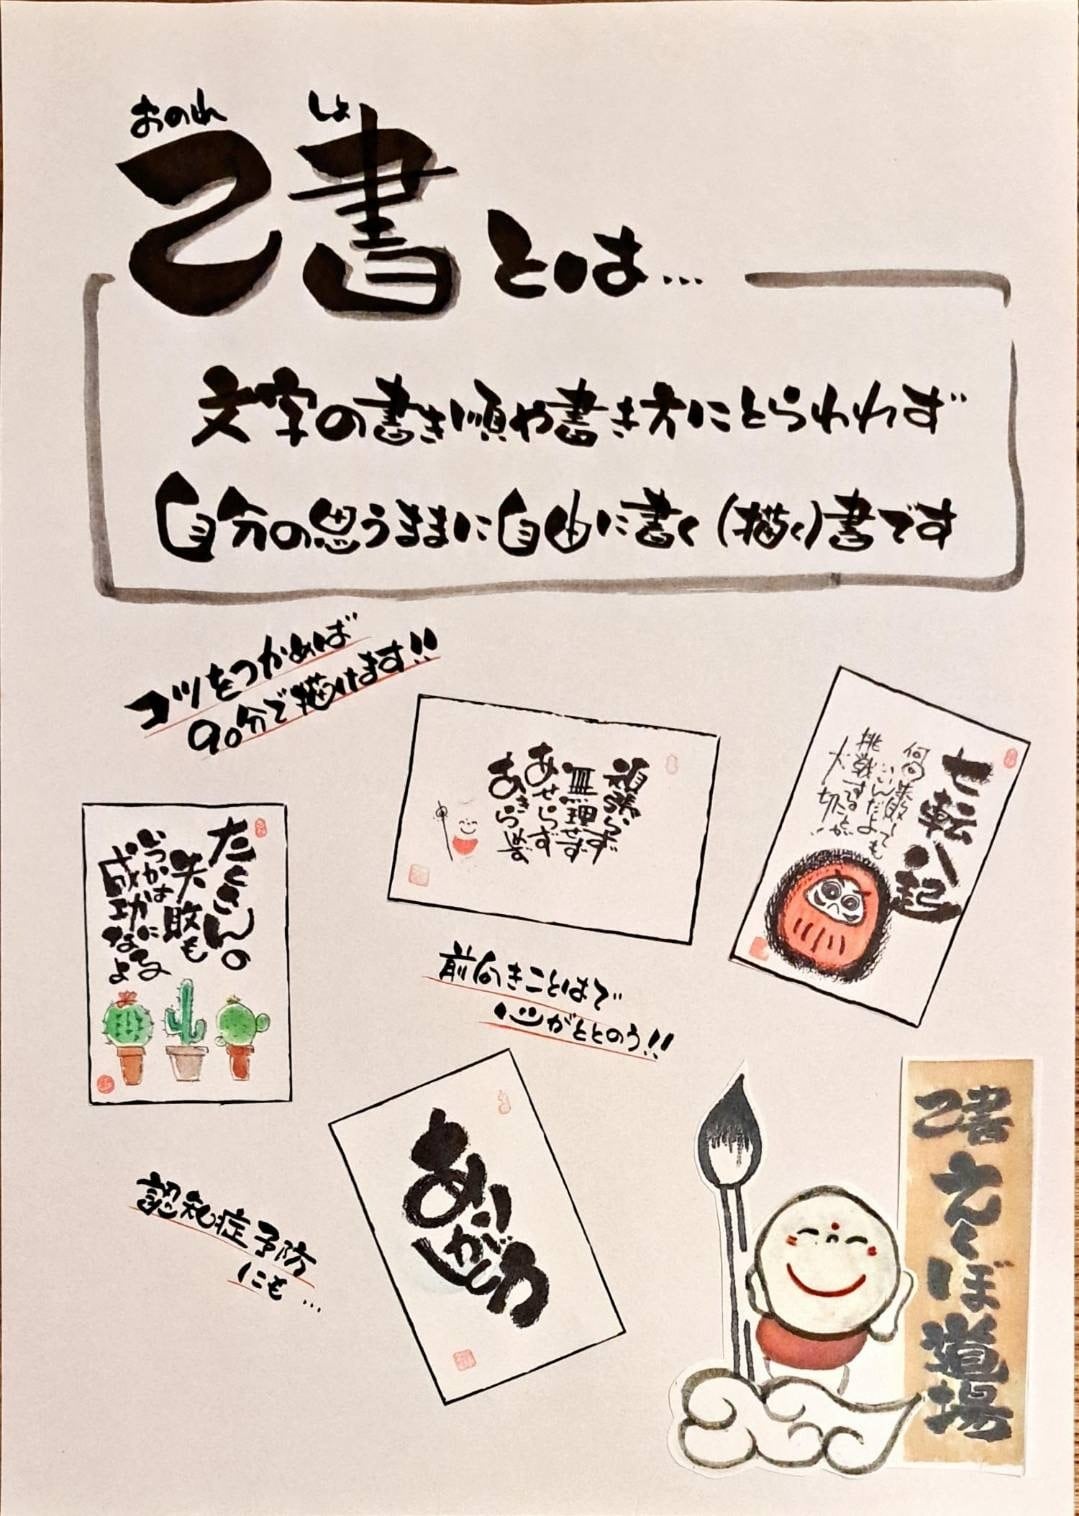 おのれ しょ
己書とは…
文字の書き順や書き方にとらわれず
自分の思うままに自由に書く(描く)書です
コツをつかめば
90分で描けます!!
頑張らず
無理せず
あせらず
あきらめず
七転八起
何回失敗しても
いいんだよ
挑戦することが
大切だ!!
たくさんの
失敗も
いつかは
成功になるよ
前向きことばで
心がととのう!!
ありがとう
認知症予防
にも…
己書
えくぼ道場